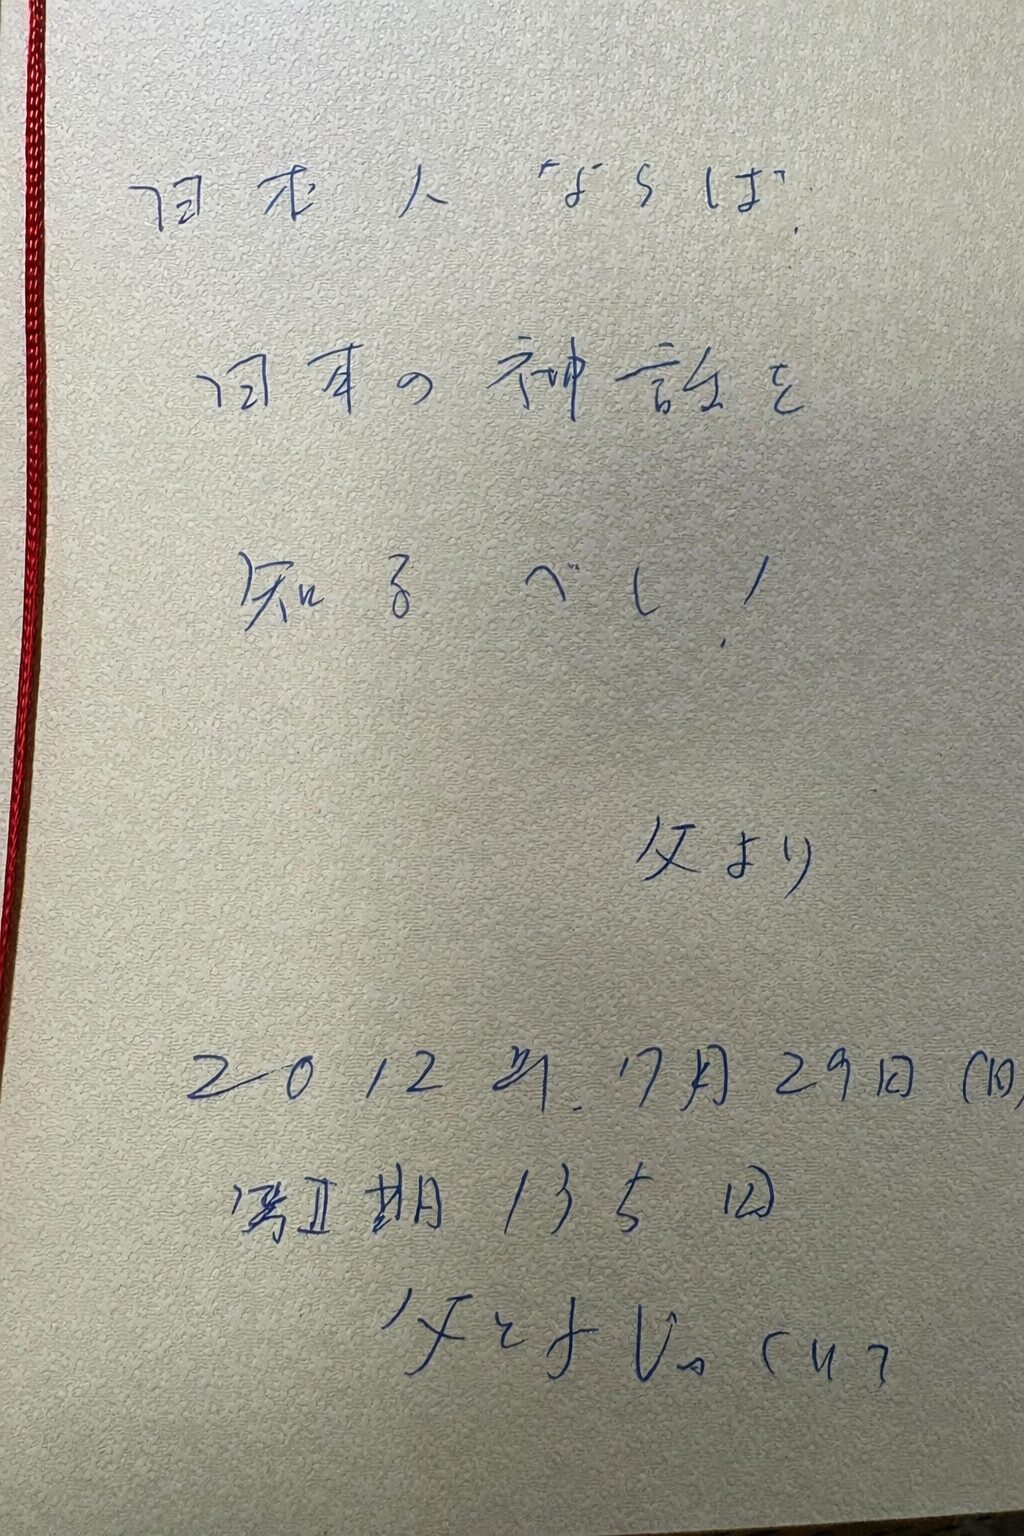 日本人ならば、
日本の神話を
知るべし!
父より
2012年.7月29日(日)
期135回
父と